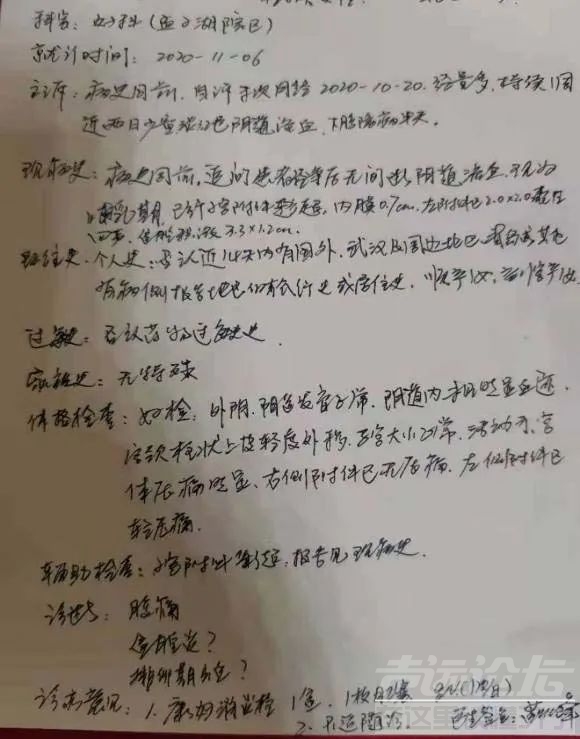 科室：妇科（孟子湖院区）
就诊时间：2020-11-06
主诉：病史同前，自诉末次月经2020-10-20，经量多，持续1周
近两日少量淡红色阴道流血，下腹隐痛半天。
现病史：病史同前，追问患者经净后无间断阴道流血，现为
哺乳期，已行子宫附件彩超，内膜0.7cm，左附件区2.0×2.0
盆腔积液3.3×1.2cm。
既往史、个人史：否认近14天内有国外、武汉及周边地区或其他
有病例报告地区的旅行史或居住史，顺产1次，
过敏史：否认药物过敏史。
家族史：无特殊
体格检查：妇检：外阴、阴道发育正常，阴道内未明显血迹，
宫颈柱状上皮轻度外移，子宫大小正常，活动可，宫
体压痛明显，右侧附件区无压痛，左侧附件区
轻压痛。
辅助检查：子宫附件彩超，报告见现病史。
诊断：腹痛
盆腔炎？
排卵期出血？
诊疗意见：1. 康妇消炎栓 1盒
2. 不适随诊 医生签名：